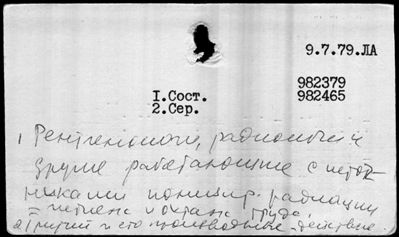 9.7.79.ЛА
982379
982465
I.Сост.
2.Сер.
1 Рентгенологи, радиологи и
другие работающие с источ-
никами ионизир. радиации
гигиена и охрана труда.
2 Тритий и его производные - действие